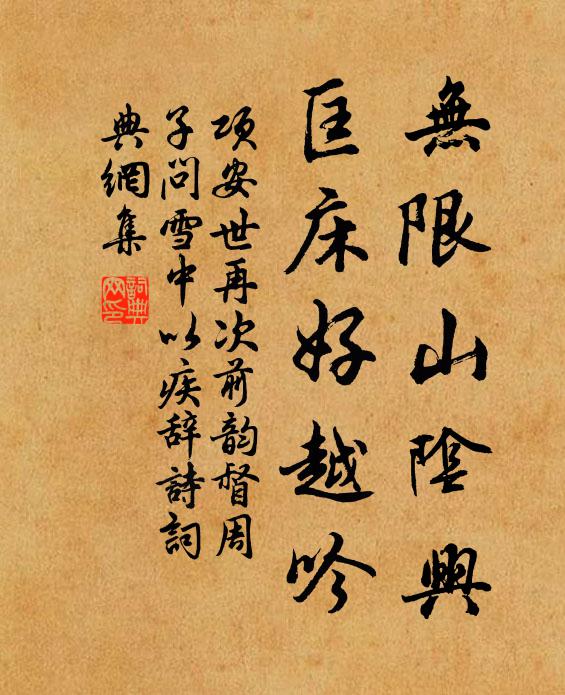 無限山陰興
匡床好越吟
项安世再次前韵督周
子问雪中以疾辞詩詞
典網集
詞典
网印